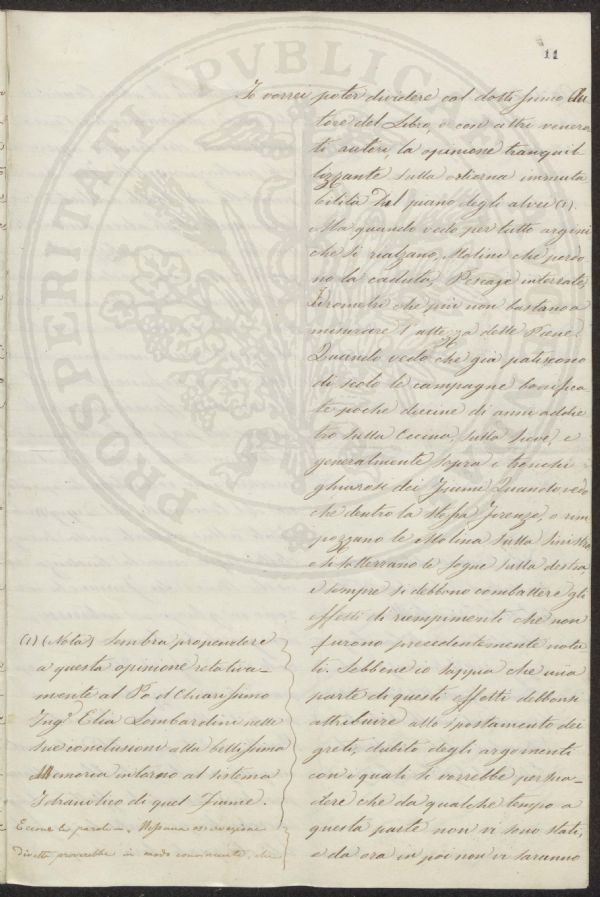 11
Io vorrei poter dividere col dottissimo Au
tore del Libro, e con altri venera
ti autori, la opinione tranquil
lizzante sulla odierna immuta
bilità del piano degli alvei (1).
Ma quando vedo per tutto argini
che si rialzano, Molini che perdo
no la caduta, Pescaje interrate,
Idrometri che più non bastano a
misurare l'altezza delle Piene.
Quando vedo che già patiscono
di scolo le campagne bonifica
te poche diecine di anni addie
tro sulla Cecina, sulla Sieve, e
generalmente sopra i tronchi
ghiarosi dei Fiumi, Quando vedo
che dentro la stessa Firenze, o rim
pozzano le Molina sulla sinistra
o si sotterrano le fogne sulla destra,
e sempre si debbono combattere gli
effetti di riempimenti che non
furono precedentemente nota
ti. Sebbene io sappia che una
parte di questi effetti debbonsi
attribuire allo spostamento dei
greti, dubito degli argomenti
con i quali si vorrebbe persua-
dere che da qualche tempo a
questa parte non vi sono stati,
e da ora in poi non vi saranno
(1) (Nota) Sembra propendere
a questa opinione relativa-
mente al Po il Chiarissimo
Ingre Elia Lombardini nelle
sue conclusioni alla bellissima
Memoria intorno al sistema
Idraulico di quel Fiume.
Eccone le parole =. Nessuna osservazione
diretta proverebbe in modo convincente, che
PROSPERITATI PVBLIC